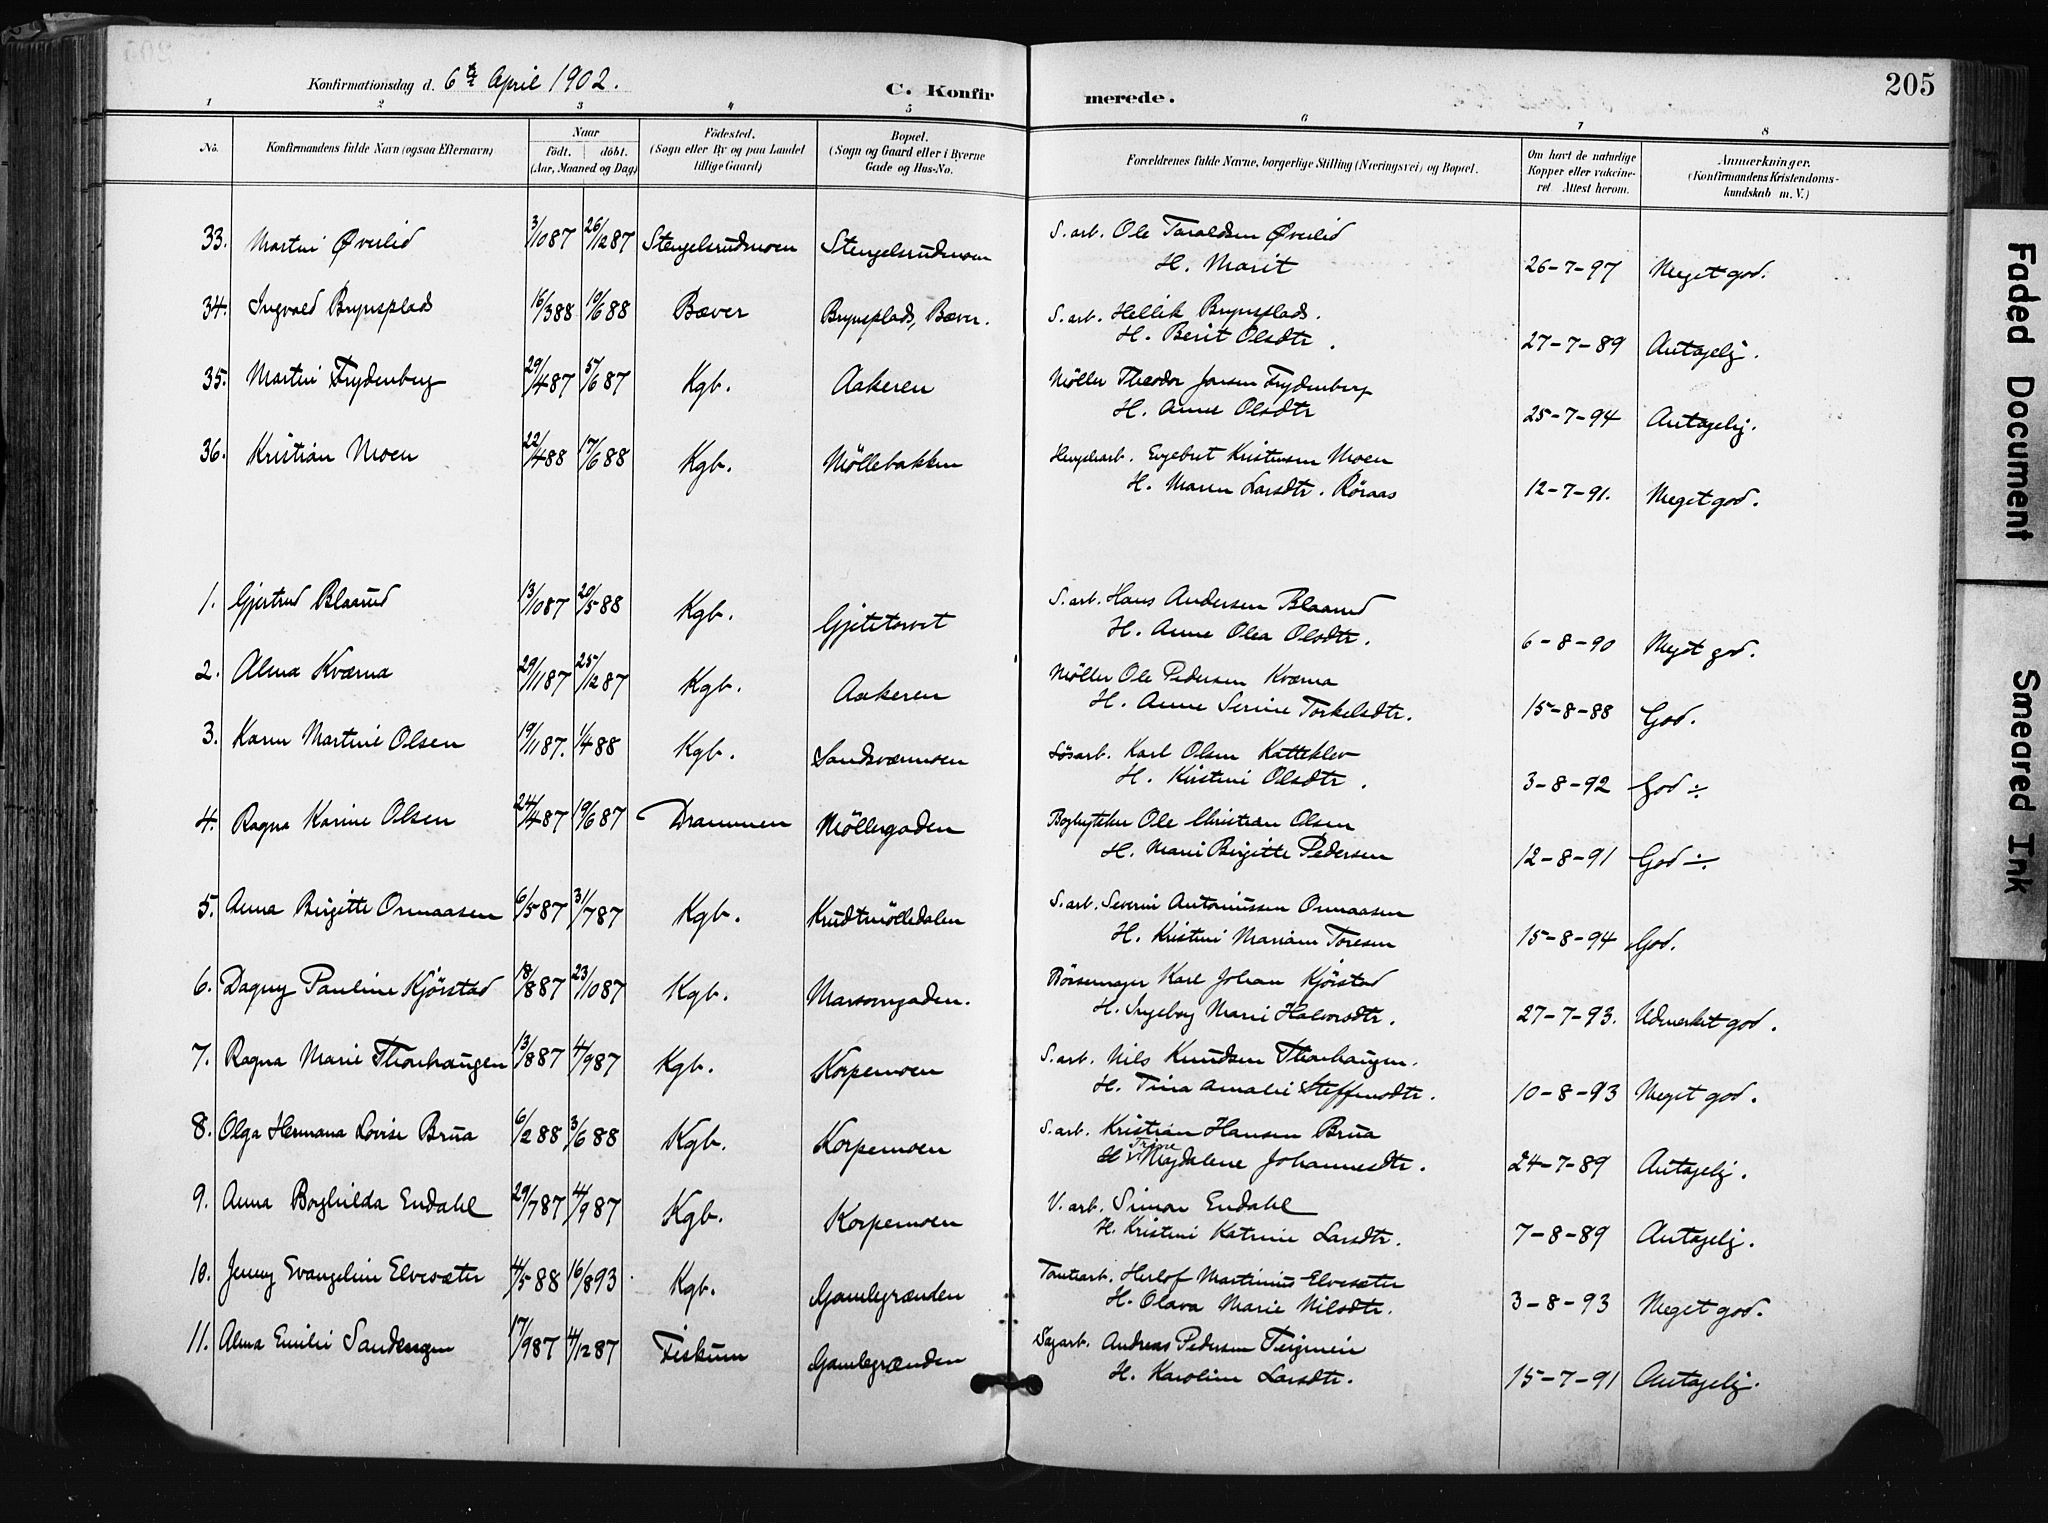 Konfirmationsdag d. 6te April 1902.
C. Konfirmerede.
205
1 2 3 4 5 6 7 8
No. Konfirmandens fulde Navn (ogsaa Efternavn) Naar födt. döbt. (Aar, Maaned og Dag) Födested. (Sogn eller By og paa Landet tillige Gaard) Bopæl. (Sogn og Gaard eller i Byerne Gade og Hus-No. Forældrenes fulde Navne, borgerlige Stilling (Næringsvei) og Bopæl. Om havt de naturlige Kopper eller vakcineret Attest herom. Anmærkninger. (Konfirmandens Kristendomskundskab m. V.)
33. Martin Øverlid 3/10 87 26/12 87 Stengelsrudmoen Stengelsrudmoen S. arb. Ole Taraldsen Øverlid
H. Marit 26-7-97 Meget god.
34. Ingvald Brynsplads 16/3 88 10/6 88 Bæver Brynsplads, Bæver. S. arb. Hellik Brynsplads.
H. Berit Olsdtr. 27-7-89 Antagelig.
35. Martin Frydenberg 29/4 87 5/6 87 Kgb. Aakeren Møller Theodor Jansen Frydenberg
H. Anne Olsdtr 25-7-94 Antagelig.
36. Kristian Moen 22/4 88 17/6 88 Kgb. Møllebakken Engebret Kristensen Moen
H. Maren Larsdtr. Røraas 12-7-91. Meget god.
1. Gjertrud Blaarud 13/10 87 20/5 88 Kgb. Gjetetorvet S. arb. Hans Andersen Blaarud
H. Anne Olea Olsdtr. 6-8-90 Meget god.
2. Alma Kværna 29/11 87 25/12 87 Kgb. Aakeren Møller Ole Pedersen Kværna
H. Anne Serine Torkelsdtr. 15-8-88 God.
3. Karen Martine Olsen 19/11 87. 1/4 88 Kgb. Sandsværmoen Løsarb. Karl Olsen Katteklev
H. Kirstine Olsdtr. 3-8-92 God ÷
4. Ragna Karine Olsen 24/4 87 19/6 87 Drammen Møllergaden Ole Christian Olsen
H. Marie Birgitte Pedersen 12-8-91 God ÷
5. Anna Birgitte Ormaasen 6/5 87 31/7 87 Kgb. Krudtmølledalen S. arb. Severin Antoniussen Ormaasen
H. Kristine Mariane Toresen 15-8-94 God.
6. Dagny Pauline Kjørstad 18/8 87 23/10 87 Kgb. Børsemager Karl Johan Kjørstad
H. Ingeborg Marie Halvorsdtr. 27-7-93. Udmerket god.
7. Ragna Marie Thorhaugen 13/8 87 4/9 87 Kgb. Korpemoen S. arb. Nils Knudsen Thorhaugen.
H. Tina Amalie Steffensdtr. 10-8-93 Meget god.
8. Olga Hermana Lovise Brua 6/2 88 3/6 88 Kgb. Korpemoen S. arb. Kristian Hansen Brua
H. Trine Magdalene Johannesdtr. 24-7-89 Antagelig.
9. Anna Borghilda Endahl 29/7 87 4/9 87 Kgb. Korpemoen V. arb. Simon Endahl
H. Kristine Katrine Larsdtr. 7-8-89 Antagelig.
10. Jenny Evangeline Elvesæter 4/5 88 16/8 93. Kgb. Gamlegrænden Tomtearb. Herlof Martinius Elvesæter
H. Olava Marie Nilsdtr. 3-8-93 Meget god.
11. Alma Emilie Sandengen 17/9 87 4/12 87 Fiskum Gamlegrænden Sagarb. Andreas Pedersen
H. Karoline Larsdtr. 15-7-91 Antagelig.
Faded Document
Smeared Ink